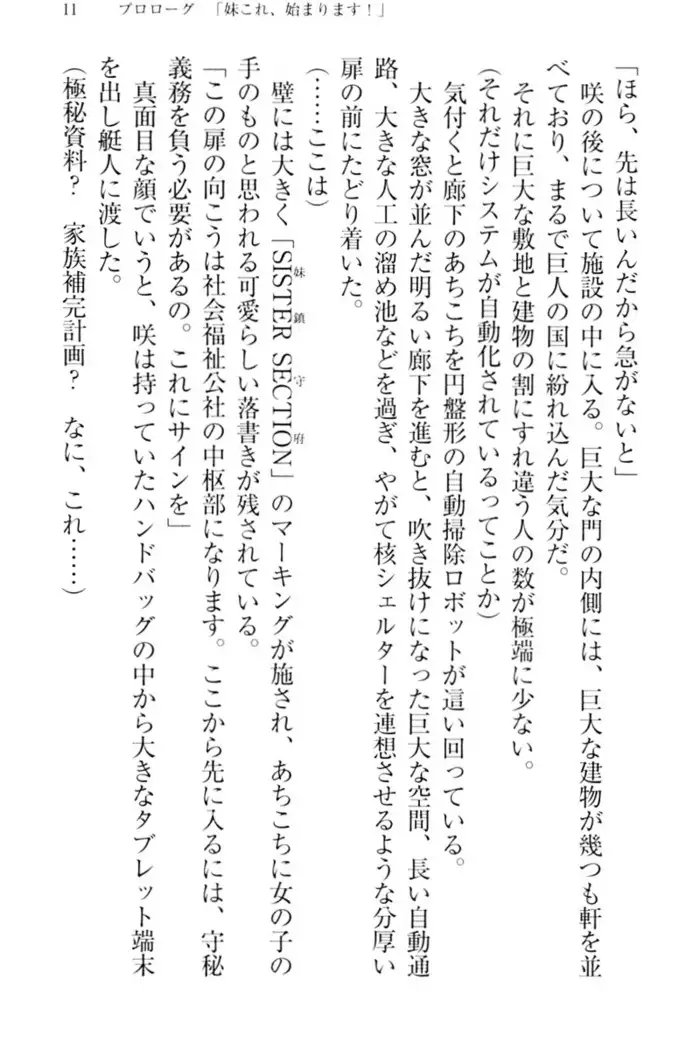 11　プロローグ　「妹これ、始まります！」
「ほら、先は長いんだから急がないと」
　咲の後について施設の中に入る。巨大な門の内側には、巨大な建物が幾つも軒を並
べており、まるで巨人の国に紛れ込んだ気分だ。
　それに巨大な敷地と建物の割にすれ違う人の数が極端に少ない。
（それだけシステムが自動化されているってことか）
　気付くと廊下のあちこちを円盤形の自動掃除ロボットが這い回っている。
　大きな窓が並んだ明るい廊下を進むと、吹き抜けになった巨大な空間、長い自動通
路、大きな人工の溜め池などを過ぎ、やがて核シェルターを連想させるような分厚い
扉の前にたどり着いた。
（……ここは）
妹鎖守府
　壁には大きく「SISTER SECTION」のマーキングが施され、あちこちに女の子の
手のものと思われる可愛らしい落書きが残されている。
「この扉の向こうは社会福祉公社の中枢部になります。ここから先に入るには、守秘
義務を負う必要があるの。これにサインを」
　真面目な顔でいうと、咲は持っていたハンドバッグの中から大きなタブレット端末
を出し艇人に渡した。
（極秘資料？　家族補完計画？　なに、これ……）